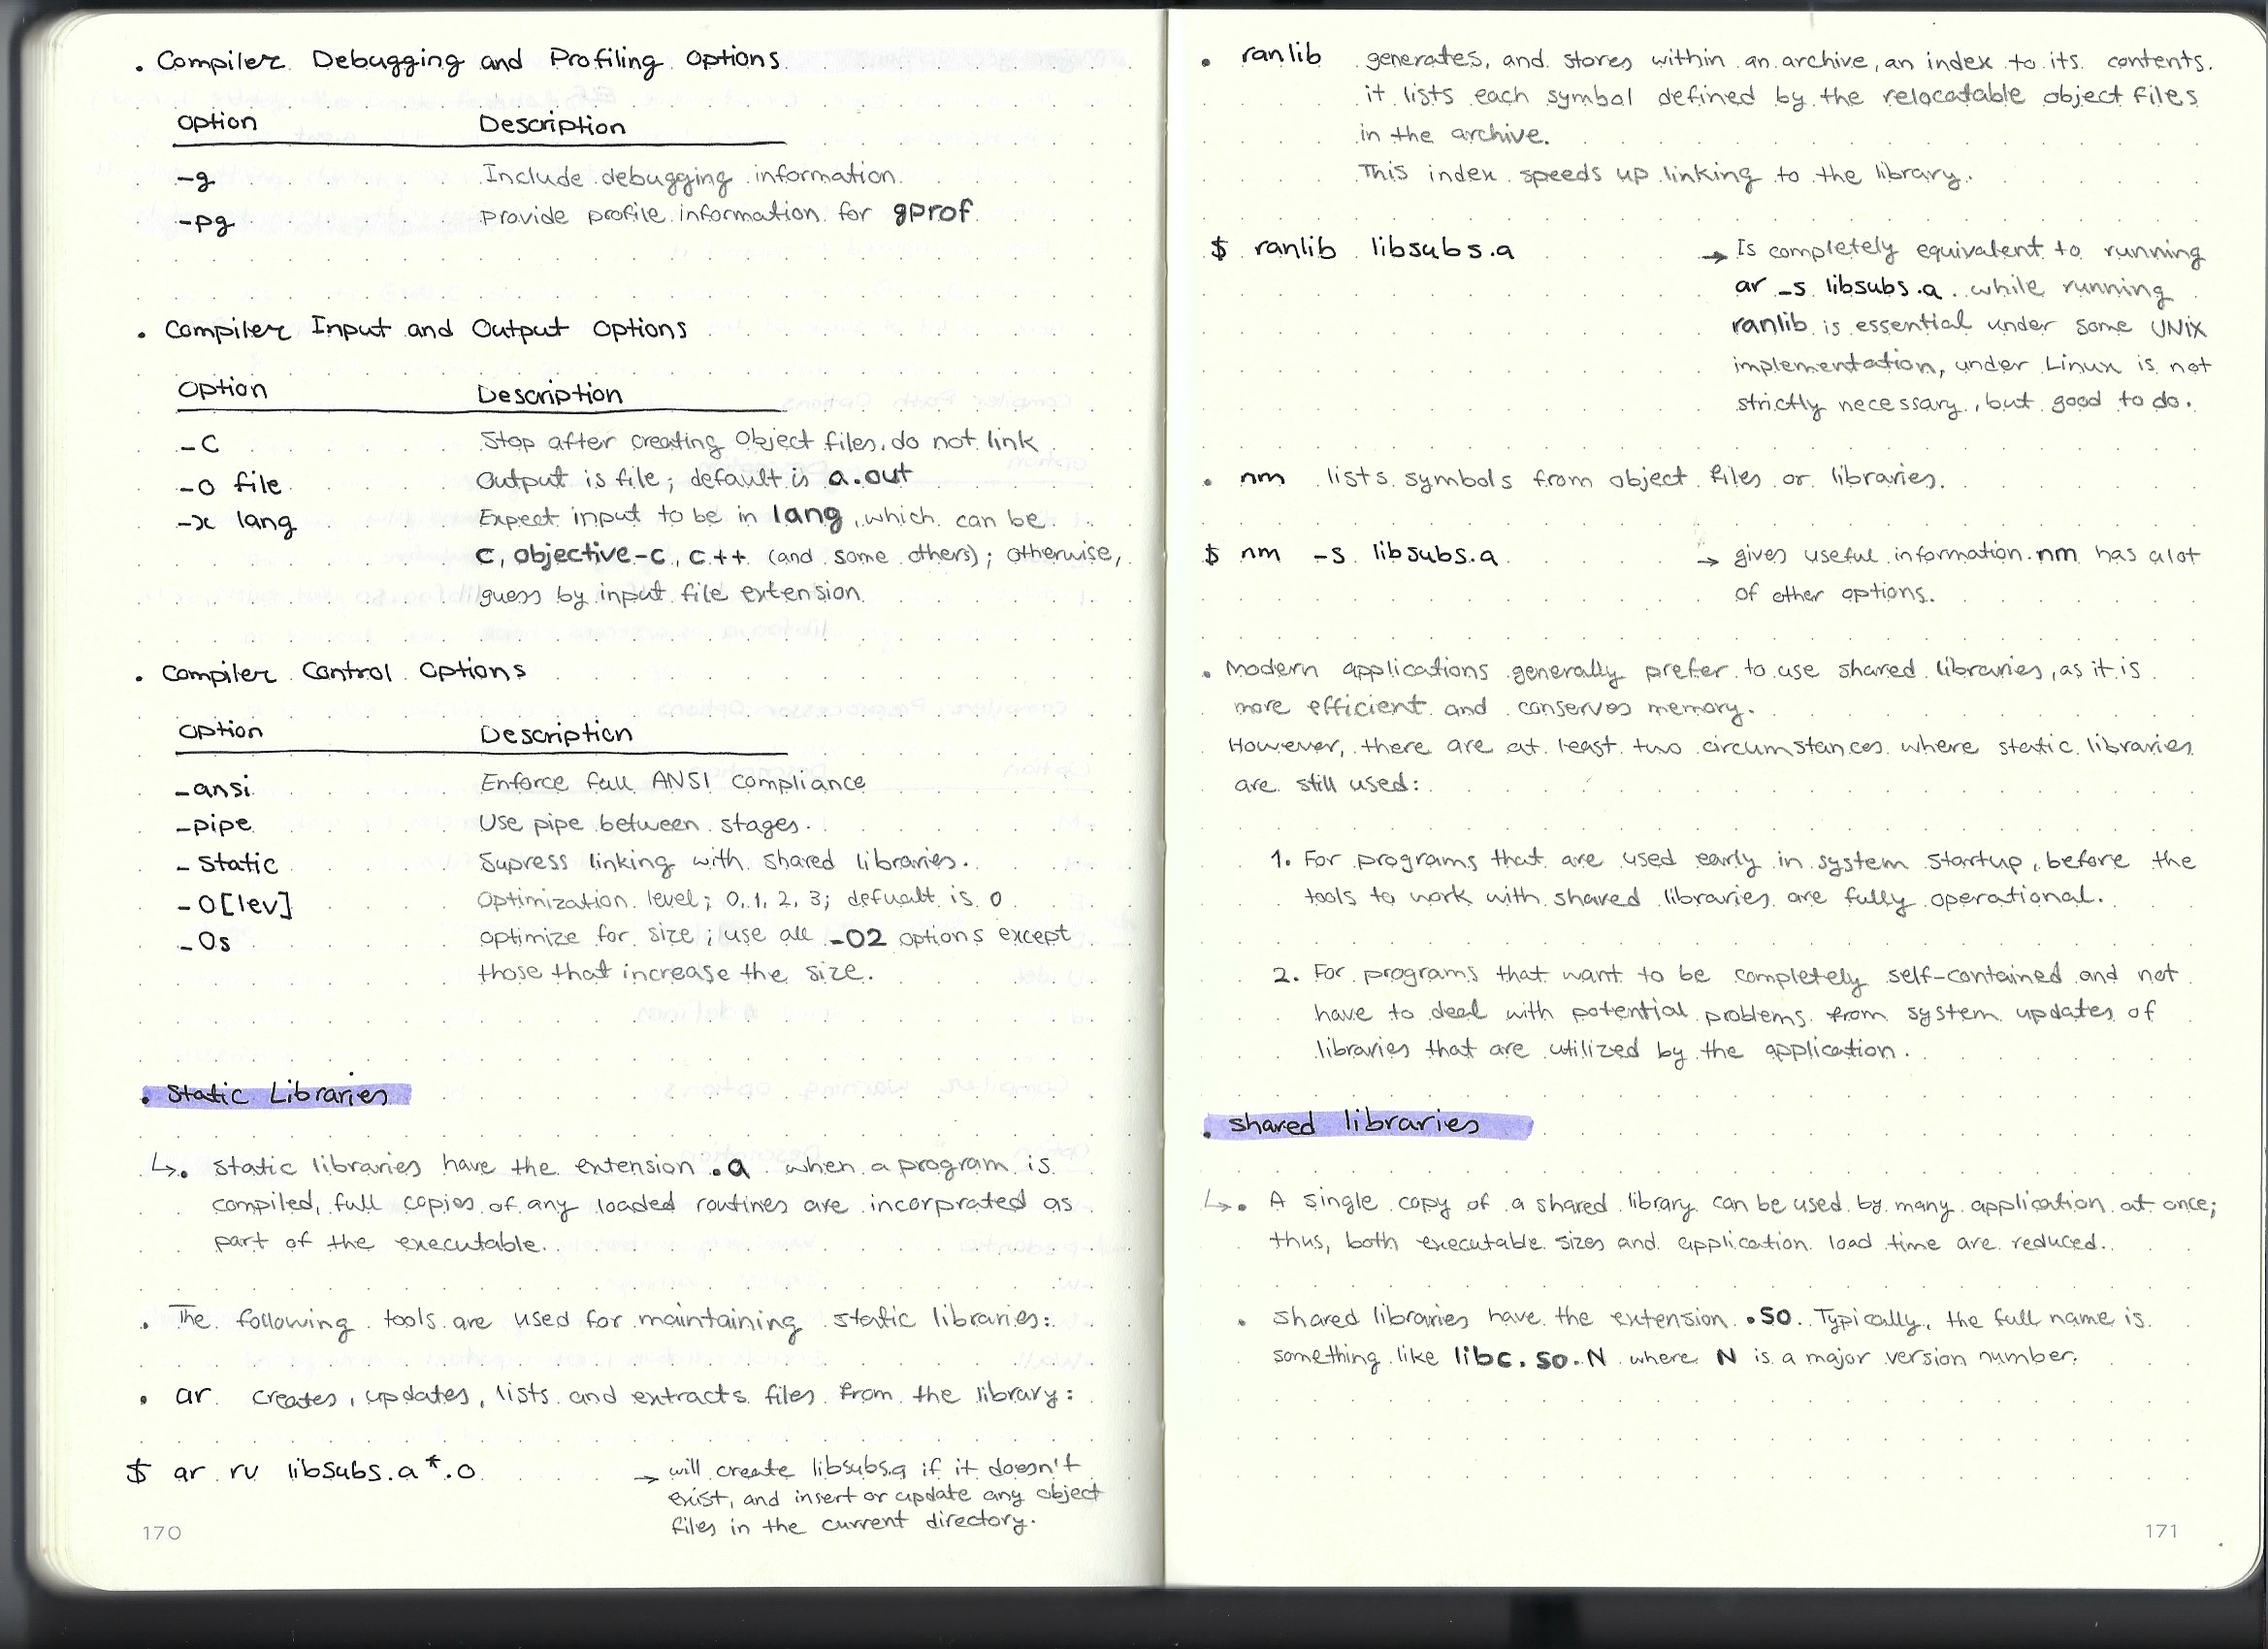 . Compiler Debugging and Profiling Options
Option Description
-g Include debugging information.
-pg Provide profile information for gprof
. Compiler Input and Output Options
Option Description
-c Stop after creating object files, do not link
-o file Output is file; default is a.out
-x lang Expect input to be in lang, which can be
c, objective-c, c++ (and some others); otherwise,
guess by input file extension
. Compiler Control Options
Option Description
-ansi Enforce full ANSI compliance
-pipe Use pipe between stages.
-static Supress linking with shared libraries.
-O[lev] Optimization level; 0, 1, 2, 3; defualt is 0
-Os optimize for size; use all -O2 options except
those that increase the size.
. Static Libraries
↳. Static libraries have the extension .a when a program is
compiled, full copies of any loaded routines are incorprated as
part of the executable.
. The following tools are used for maintaining static libraries:
. ar creates, updates, lists and extracts files from the library:
$ ar rv libsubs.a *.o → will create libsubs.a if it doesn't
exist, and insert or update any object
files in the current directory.
170
. ranlib generates, and stores within an archive, an index to its contents.
it lists each symbol defined by the relocatable object files
in the archive.
This index speeds up linking to the library.
$ ranlib libsubs.a → Is completely equivalent to running
ar -s libsubs.a. while running
ranlib is essential under some UNIX
implementation, under Linux is not
strictly necessary, but good to do.
. nm lists symbols from object files or libraries.
$ nm -s libsubs.a → gives useful information. nm has a lot
of other options.
. Modern applications generally prefer to use shared libraries, as it is
more efficient and conserves memory.
However, there are at least two circumstances where static libraries
are still used:
1. For programs that are used early in system startup, before the
tools to work with shared libraries are fully operational.
2. For programs that want to be completely self-contained and not
have to deal with potential problems from system updates of
libraries that are utilized by the application.
. shared libraries
↳. A single copy of a shared library can be used by many application at once;
thus, both executable sizes and application load time are reduced.
. shared libraries have the extension .so. Typically, the full name is
something like libc.so.N where N is a major version number.
171